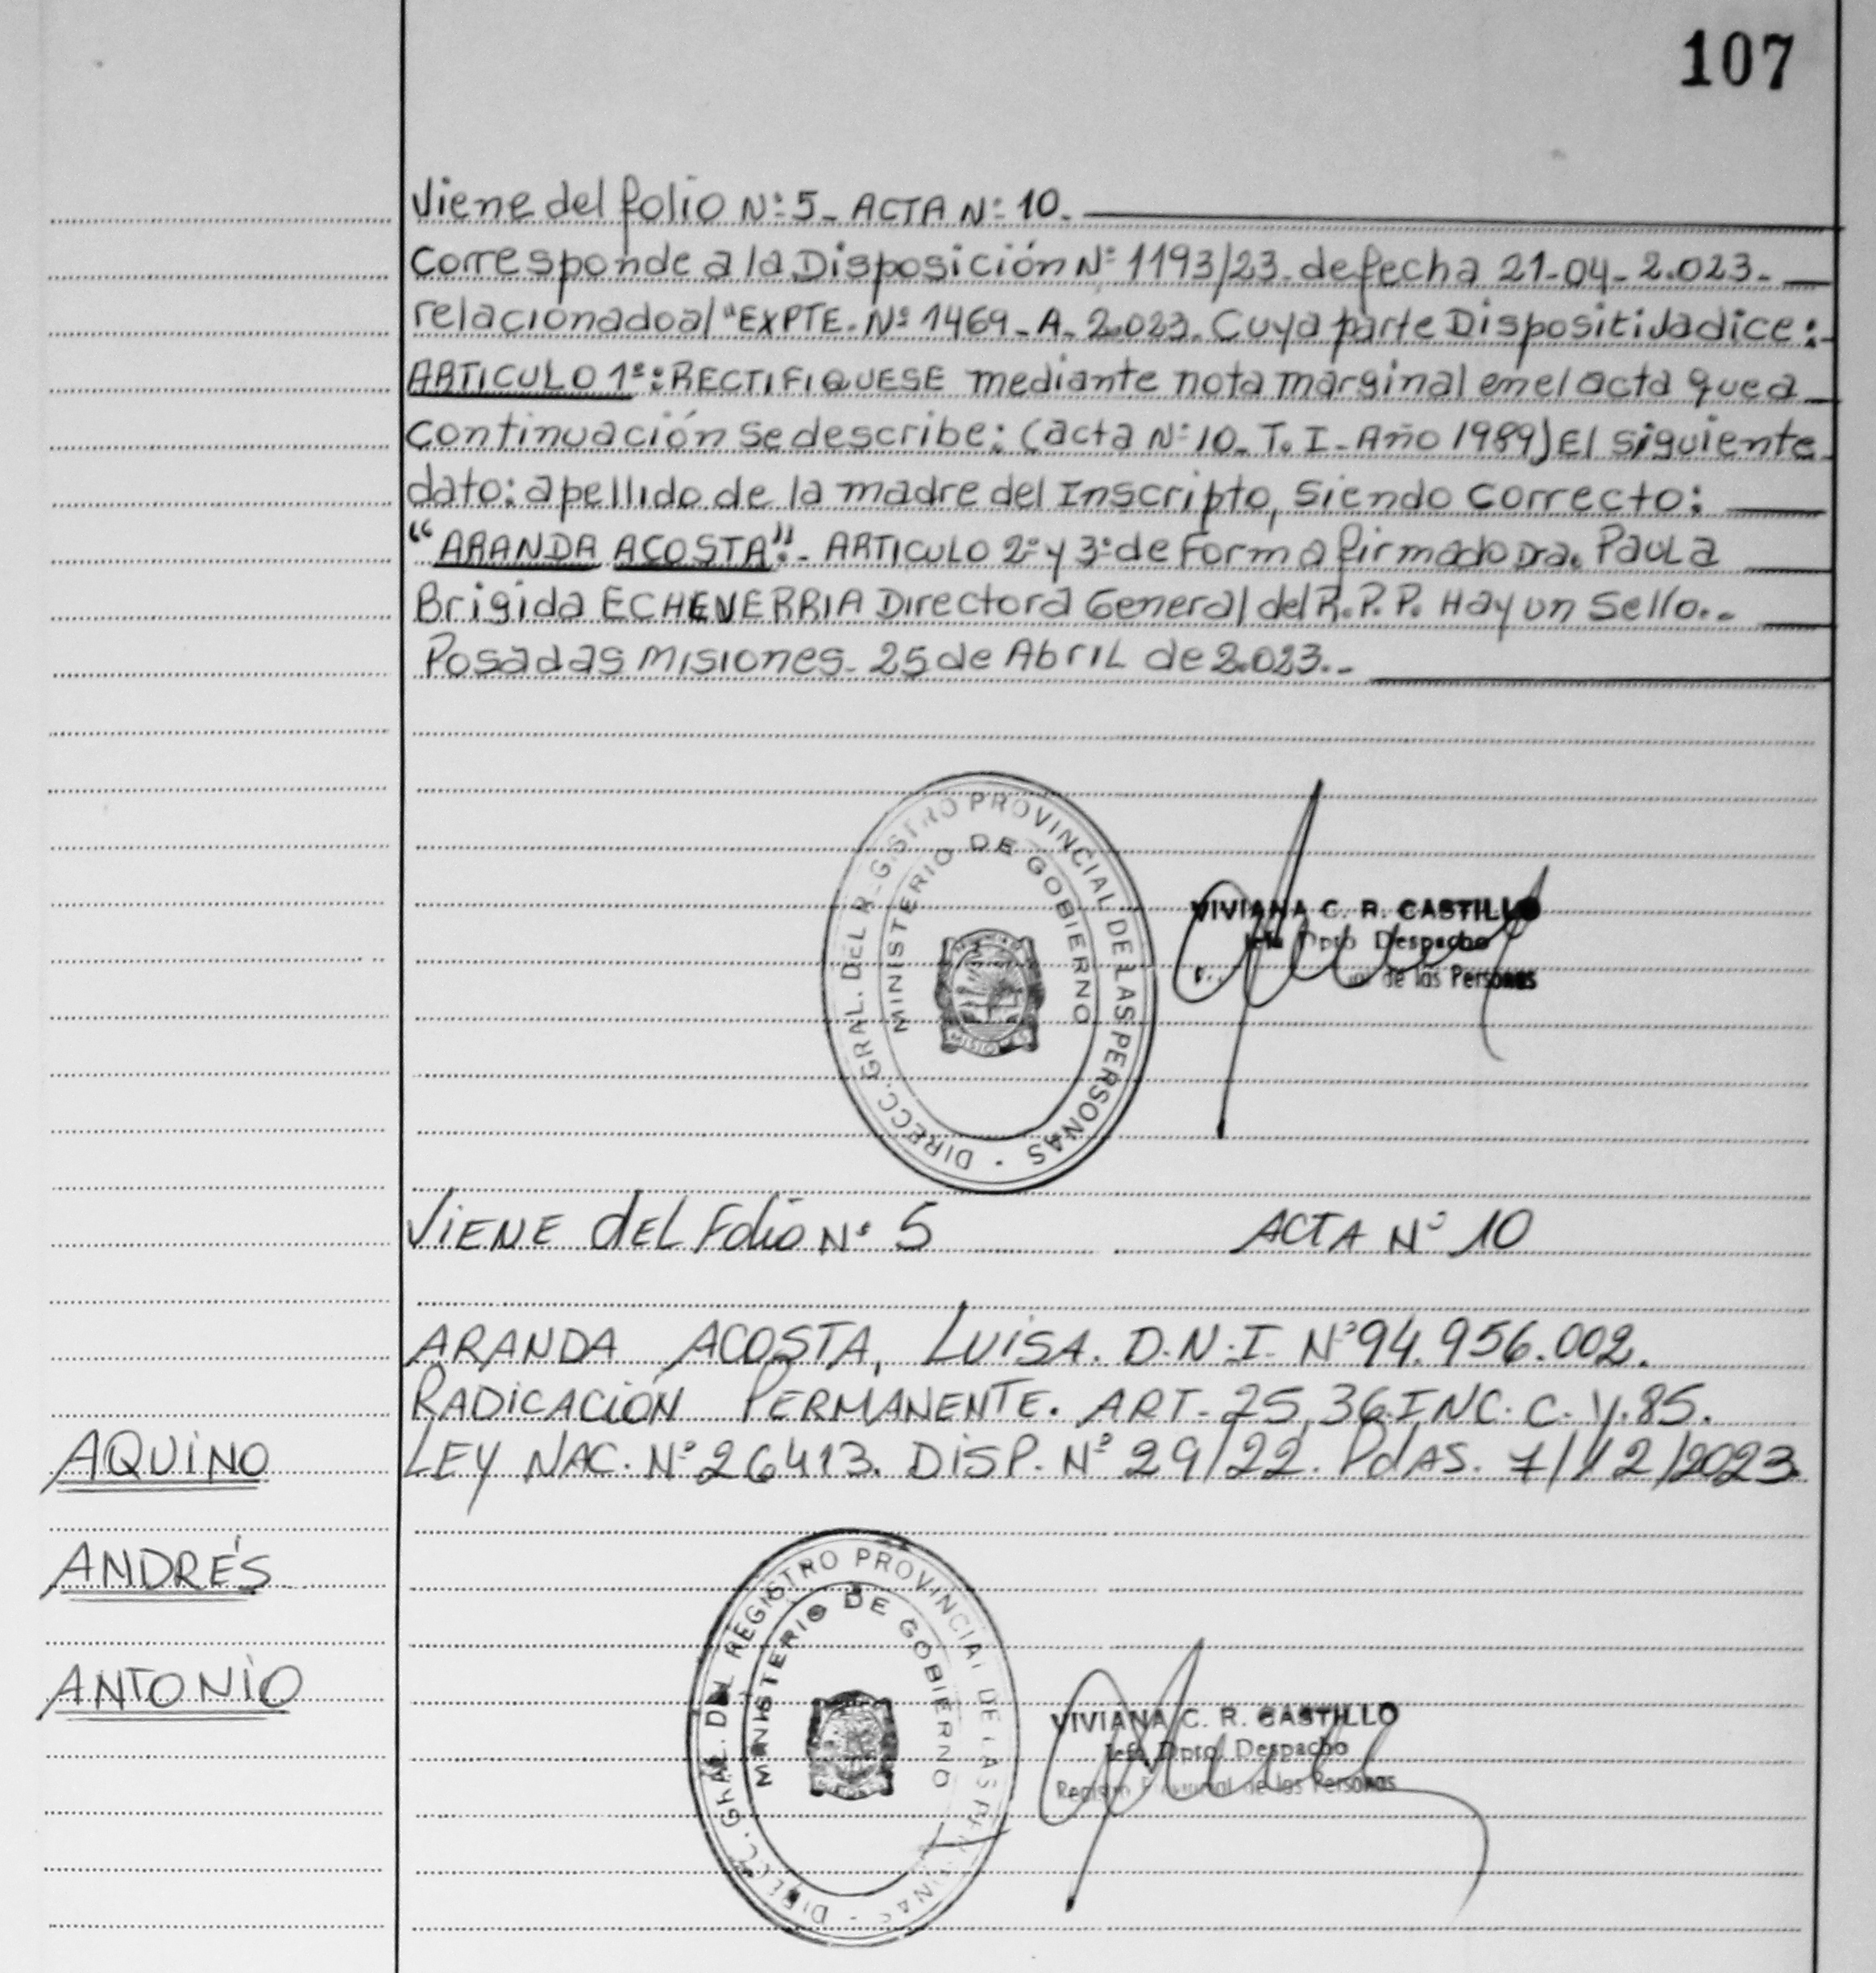 107
Viene del folio Nº 5- ACTA Nº 10.
Corresponde a la Disposición Nº 1193/23- de fecha 21-04-2.023-
relacionado al "EXPTE. Nº 1469-A-2.023. Cuya parte Dispositiva dice:
ARTICULO 1º: RECTIFIQUESE mediante nota marginal en el acta que a
continuación se describe: (acta Nº 10- T. I- Año 1989) El siguiente
dato: apellido de la madre del Inscripto, siendo correcto:
"ARANDA ACOSTA".- ARTICULO 2º y 3º de Forma firmado Dra. Paula
Brigida ECHEVERRIA Directora General del R.P.P. Hay un Sello..-
Posadas Misiones- 25 de Abril de 2.023..-
DIRECC. GRAL. DEL R-GISTRO PROVINCIAL DE LAS PERSONAS -
MINISTERIO DE GOBIERNO
VIVIANA C. R. CASTILLO
Jefe Dpto Despacho
de las Personas
VIENE dEL Folio Nº 5 ACTA Nº 10
ARANDA ACOSTA, LUISA. D.N.I. Nº 94.956.002.
RADICACIÓN PERMANENTE. ART. 25, 36. INC. C. Y. 85.
AQUINO
LEY NAC. Nº 26413. DISP. Nº 29/22. PdAS. 7/12/2023.
ANDRÉS
ANTONIO
DIRECC. GRAL. DEL REGISTRO PROVINCIAL DE LAS PERSONAS -
MINISTERIO DE GOBIERNO
VIVIANA C. R. CASTILLO
Jefe Dpto. Despacho
Registro Provincial de las Personas